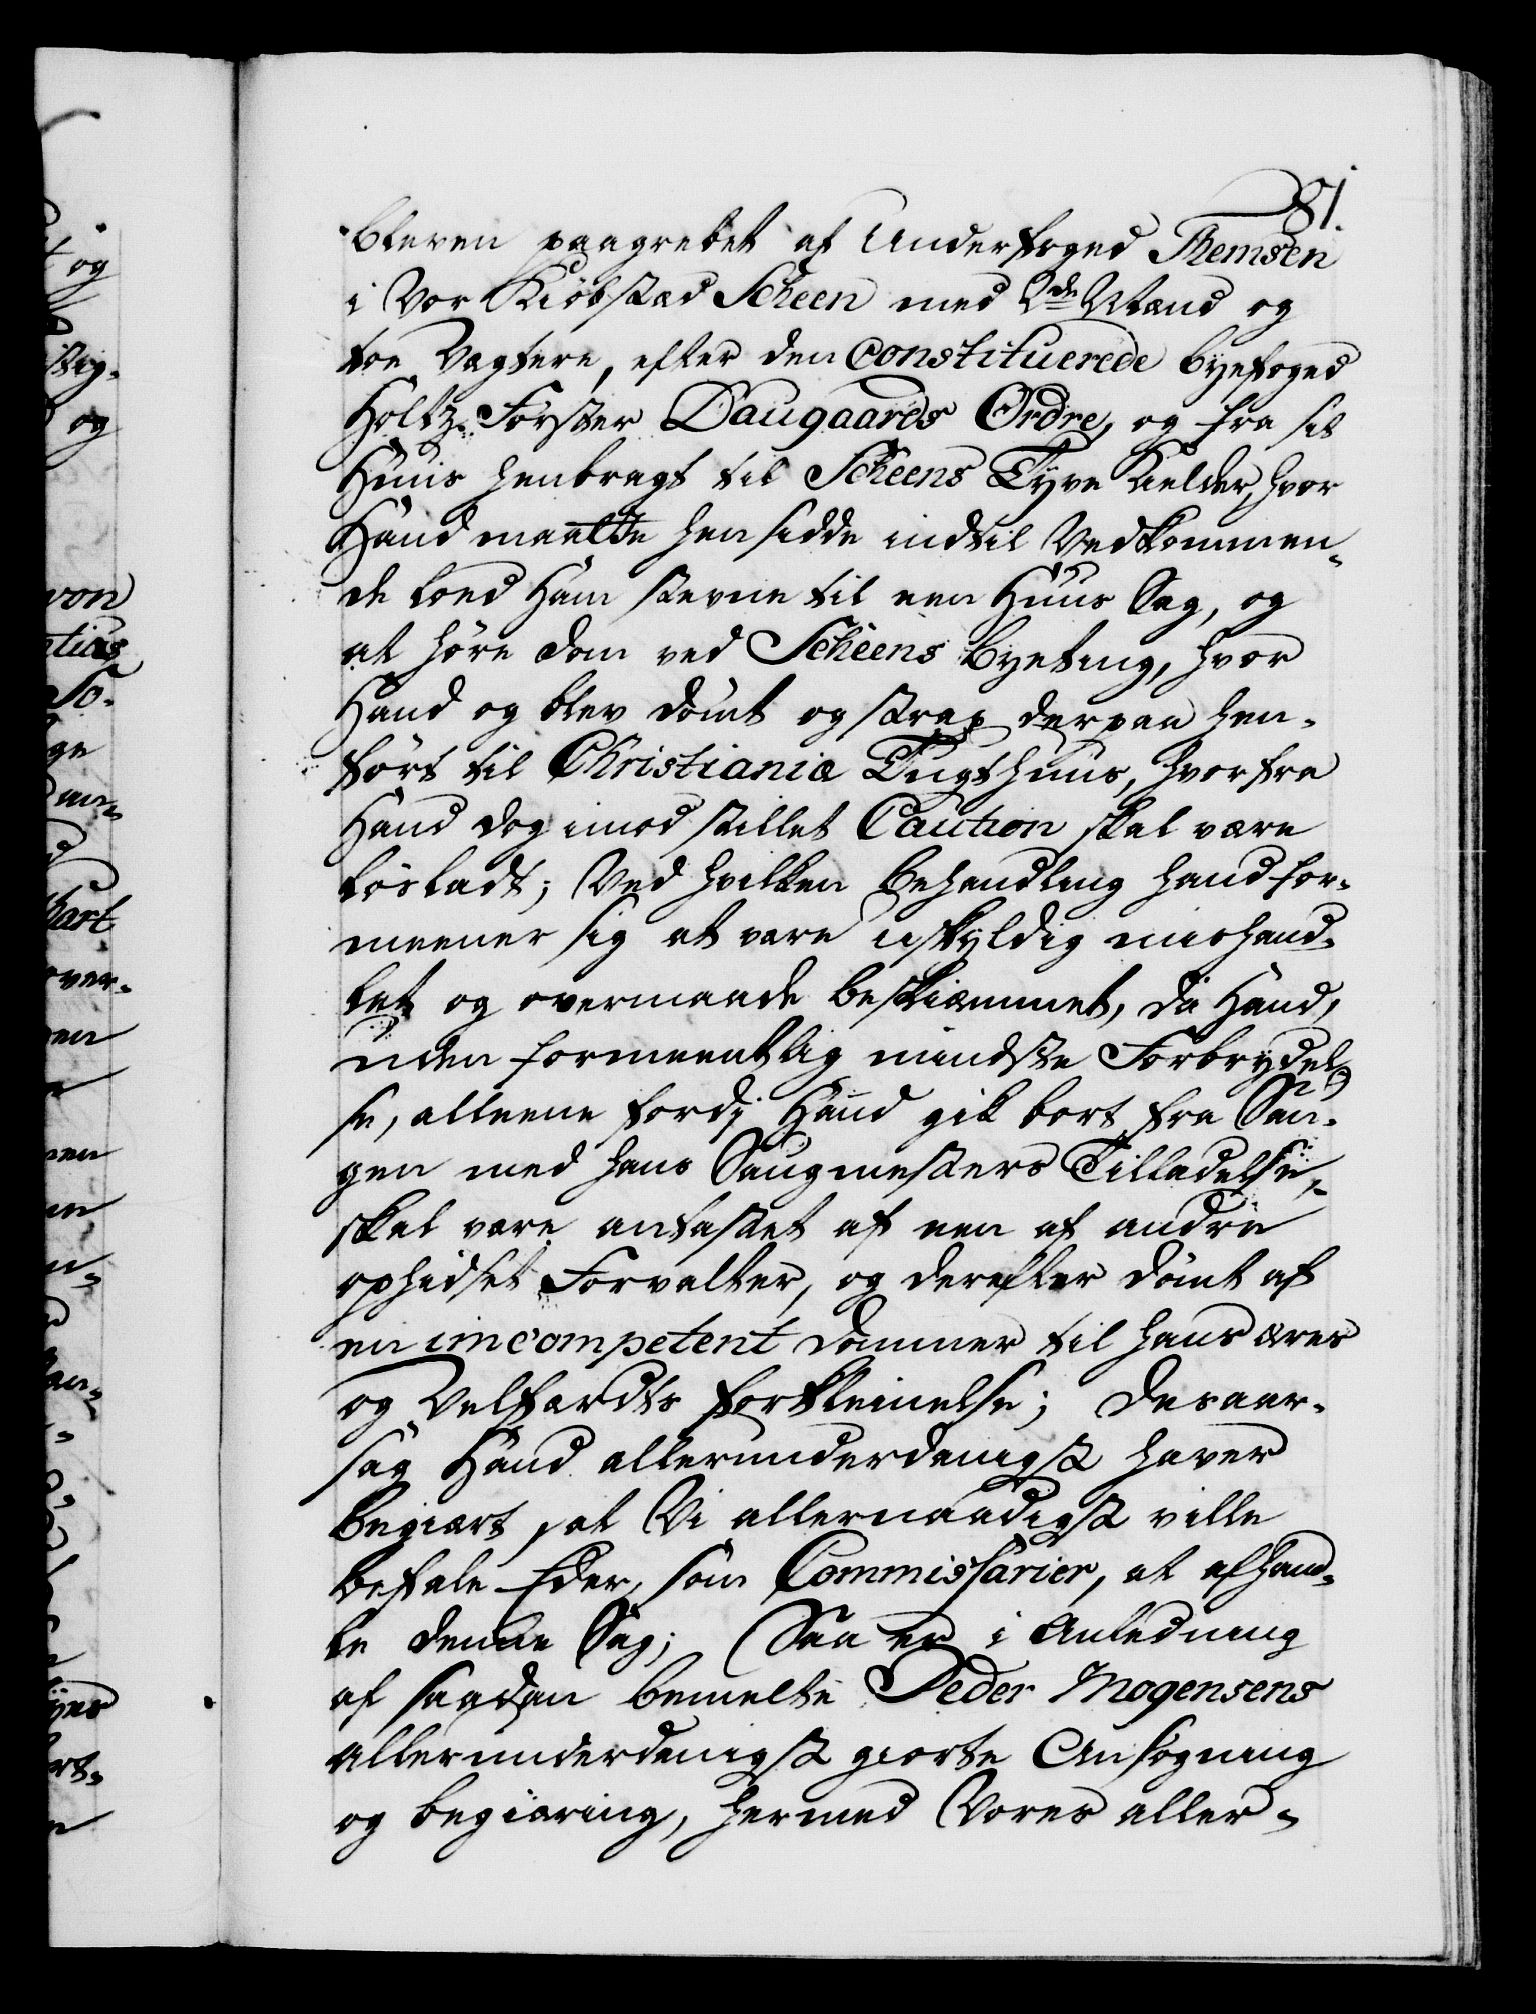 81.
bleven paagrebet af Underfoged Themsen
i Vor Kiöbstæd Scheen med 2de Mænd og
toe Vægtere, efter den Constituerede byefoged
Holtz-Förster Daugaards Ordre, og fra sit
Huus henbragt til Scheens Tyve Kielder, hvor
Hand maatte hensidde indtil Vedkommen-
de loed Ham stevne til een Huus Sag, og
at höre dom ved Scheens byeting, hvor
Hand og blev dömt og strax derpaa hen-
fört til Christianiæ Tugthuus, hvorfra
Hand dog imod stillet Caution skal være
lösladt; Ved hvilken behandling hand for-
meener sig at være uskyldig mishand-
let og overmaade beskiæmmet, da Hand,
uden formeentlig mindste Forbrydel-
se, alleene fordj Hand gik bort fra Sau-
gen med hans Saugmesters Tilladelse,
skal være antastet af een af andre
ophidset Forvalter, og derefter dömt af
en imcompetent dommer til hans æres
og Velfærdts forkleinelse; Desaar-
sag Hand allerunderdanigst haver
begiært, at Vi allernaadigst ville
befale Eder, som Commissarier, at afhand-
le denne Sag; Saa er i Anledning
af saadan bemelte Peder Mogensens
allerunderdanigst giorte Ansögning
og begiæring, hermed Vores aller-